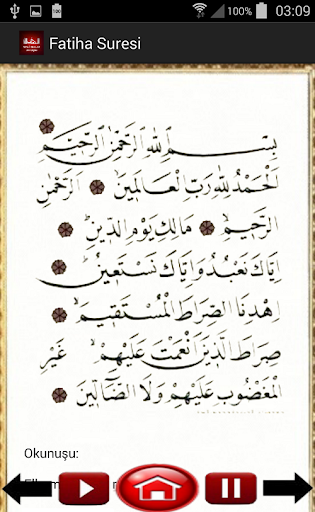 100% 03:09
Fatiha Suresi
بِسْمِ اللهِ الرَّحْمٰنِ الرَّحِيمِ
اَلْحَمْدُ لِلهِ رَبِّ الْعَالَمِينَ اَلرَّحْمٰنِ
الرَّحِيمِ مَالِكِ يَوْمِ الدِّينِ
اِيَّاكَ نَعْبُدُ وَاِيَّاكَ نَسْتَعِينُ
اِهْدِنَا الصِّرَاطَ الْمُسْتَقِيمَ
صِرَاطَ الَّذِينَ اَنْعَمْتَ عَلَيْهِمْ غَيْرِ
الْمَغْضُوبِ عَلَيْهِمْ وَلَا الضَّالِّينَ
Okunuşu: